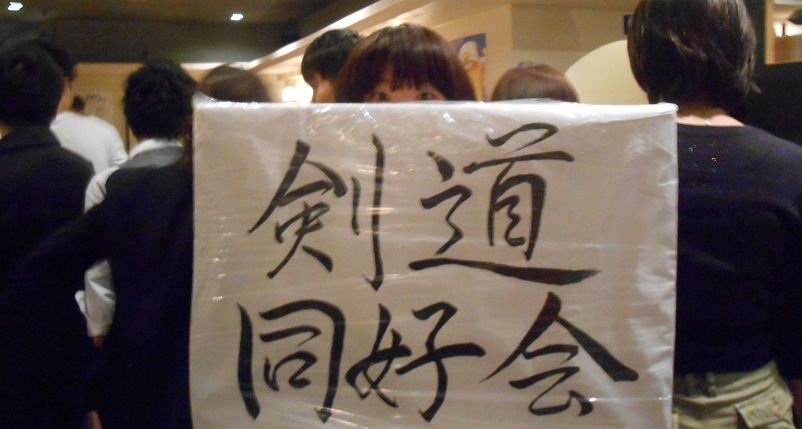 剣道
同好会